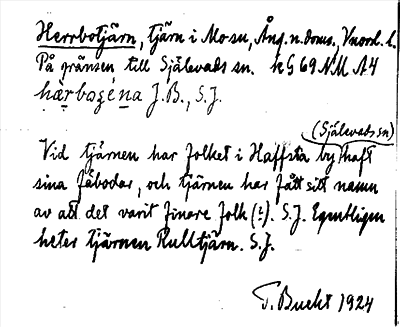 Herrbotjärn, tjärn i Mo sn, Ång. n. doms., Vnord. l.
På gränsen till Själevads sn. kG 69 NM A4
hærbozéna J.B., S.J.
(Själevads sn)
Vid tjärnen har folket i Haffsta by haft
sina fäbodar, och tjärnen har fått sitt namn
av att det varit finare folk (!). S.J. Egentligen
heter tjärnen Kulltjärn. S.J.
T. Bucht 1924